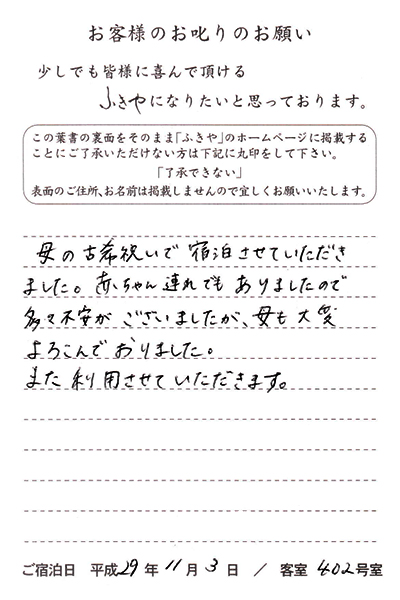 お客様のお叱りのお願い
少しでも皆様に喜んで頂ける
ふきやになりたいと思っております。
この葉書の裏面をそのまま「ふきや」のホームページに掲載する
ことにご了承いただけない方は下記に丸印をして下さい。
「了承できない」
表面のご住所、お名前は掲載しませんので宜しくお願いいたします。
母の古希祝いで宿泊させていただき
ました。赤ちゃん連れでもありましたので
多々不安がございましたが、母も大変
よろこんでおりました。
また利用させていただきます。
ご宿泊日 平成29年11月3日 / 客室402号室